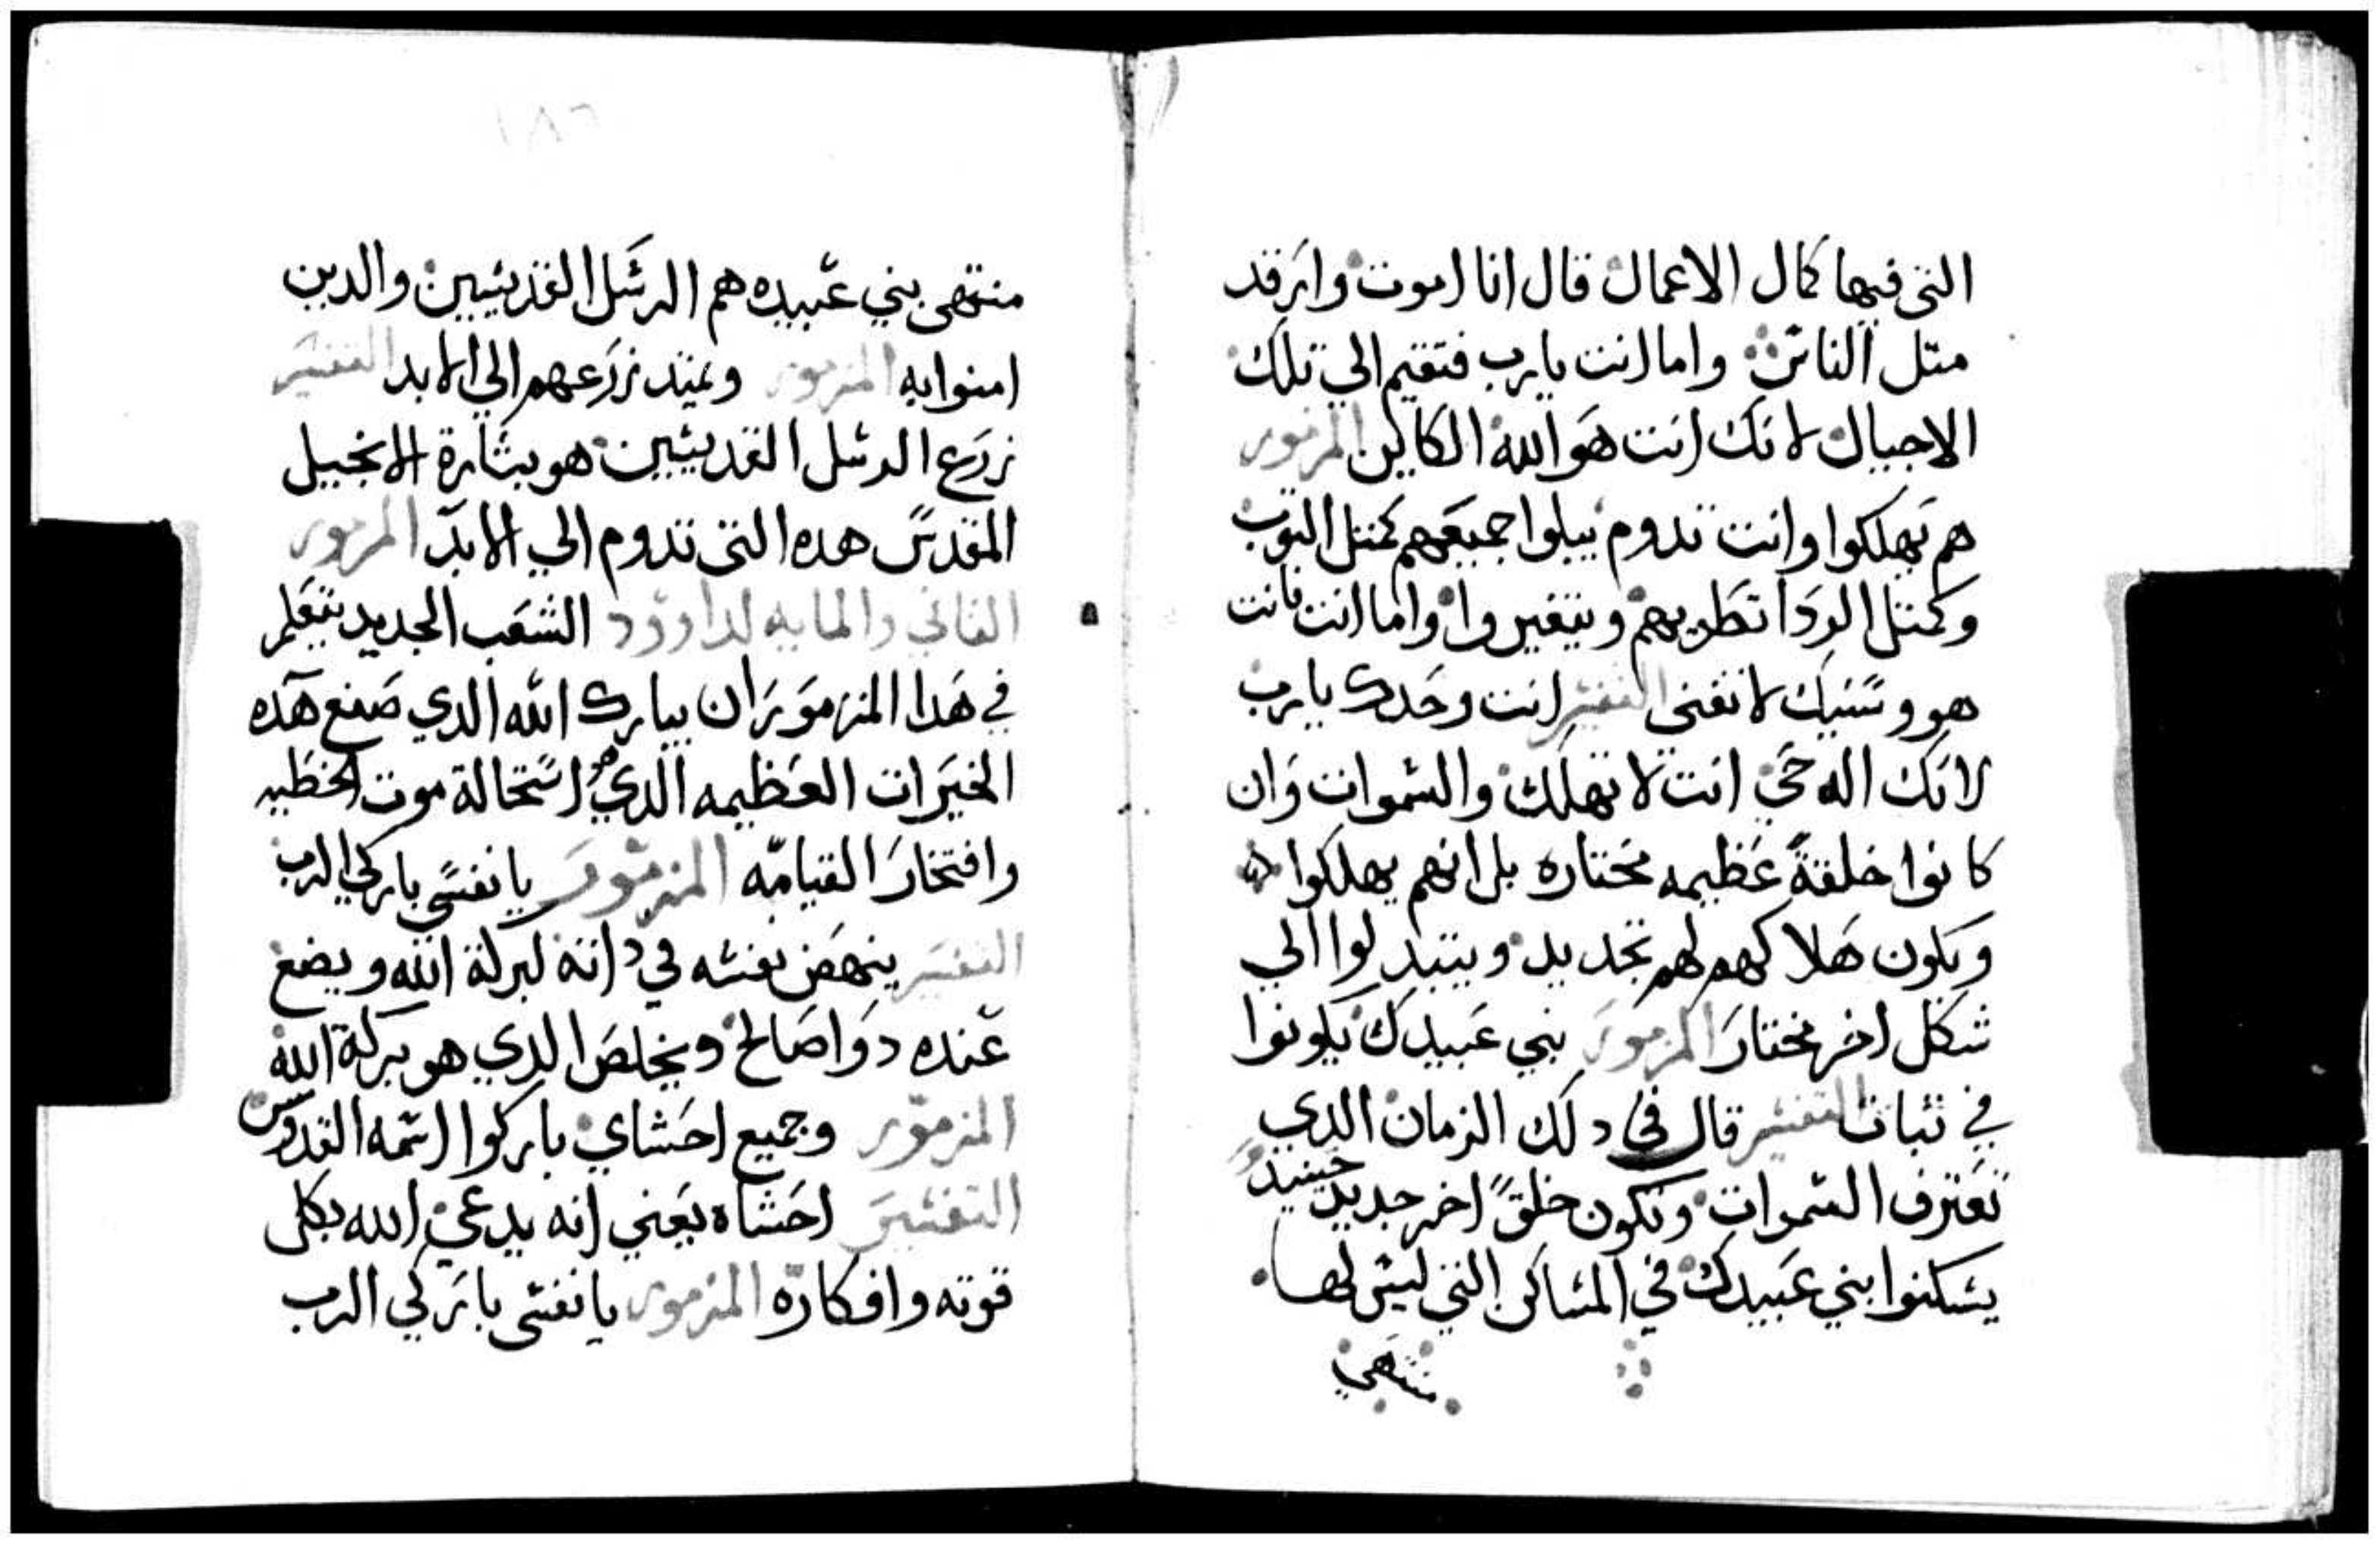 التى فيها كمال الاعمال قال انا اموت وارقد
متل الناس واما انت يارب فتقيم الي تلك
الاجيال لانك انت هو الله الكاين المزمور
هم يهلكوا وانت تدوم يبلوا جميعهم كمتل التوب
وكمتل الردا تطويهم ويتغيروا واما انت فانت
هو وسنيك لا تفنى التفسير انت وحدك يارب
لانك اله حي انت لا تهلك والسموات وان
كانوا خلقة عظيمه مختاره بل انهم يهلكوا
ويكون هلاكهم لهم تجديد ويتبدلوا الي
شكل اخر مختار المزمور بني عبيدك يكونوا
في تبات التفسير قال في دلك الزمان الدي
تعترف السموات وتكون خلق اخر جديد حينيد
يسكنوا بني عبيدك في المساكن التي ليس لها
منتهي
١٨٦
منتهى بني عبيده هم الرسل القديسين والدين
امنوا به المزمور ويمتد زرعهم الي الابد التفسير
زرع الرسل القديسين هو بشارة الانجيل
المقدس هده التى تدوم الي الابد المزمور
التاني والمايه لداوود الشعب الجديد يتعلم
في هدا المزمور ان يبارك الله الدي صنع هده
الخيرات العظيمه الدي هو استحالة موت الخطيه
وافتخار القيامه المزمور يا نفسي باركي الرب
التفسير ينهض نفسه في داته لبركة الله ويضع
عنده دوا صالح ويخلص الدي هو بركة الله
المزمور وجميع احشاي باركوا اسمه القدوس
التفسير احشاه يعني انه يدعي الله بكل
قوته وافكاره المزمور يا نفسى باركي الرب